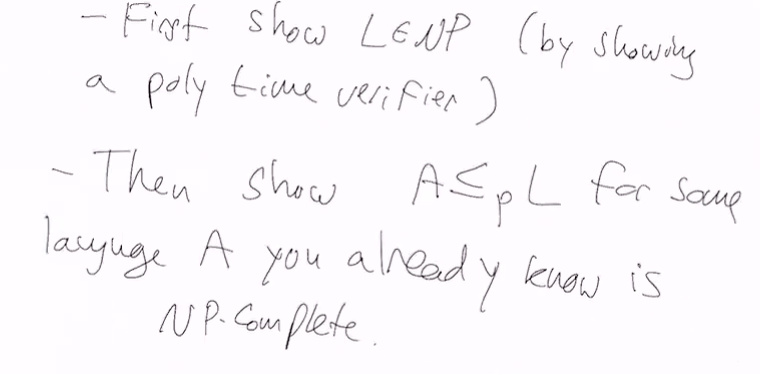 - First show L∈NP (by showing
a poly time verifier)
- Then show A≤pL for some
language A you already know is
NP-Complete.